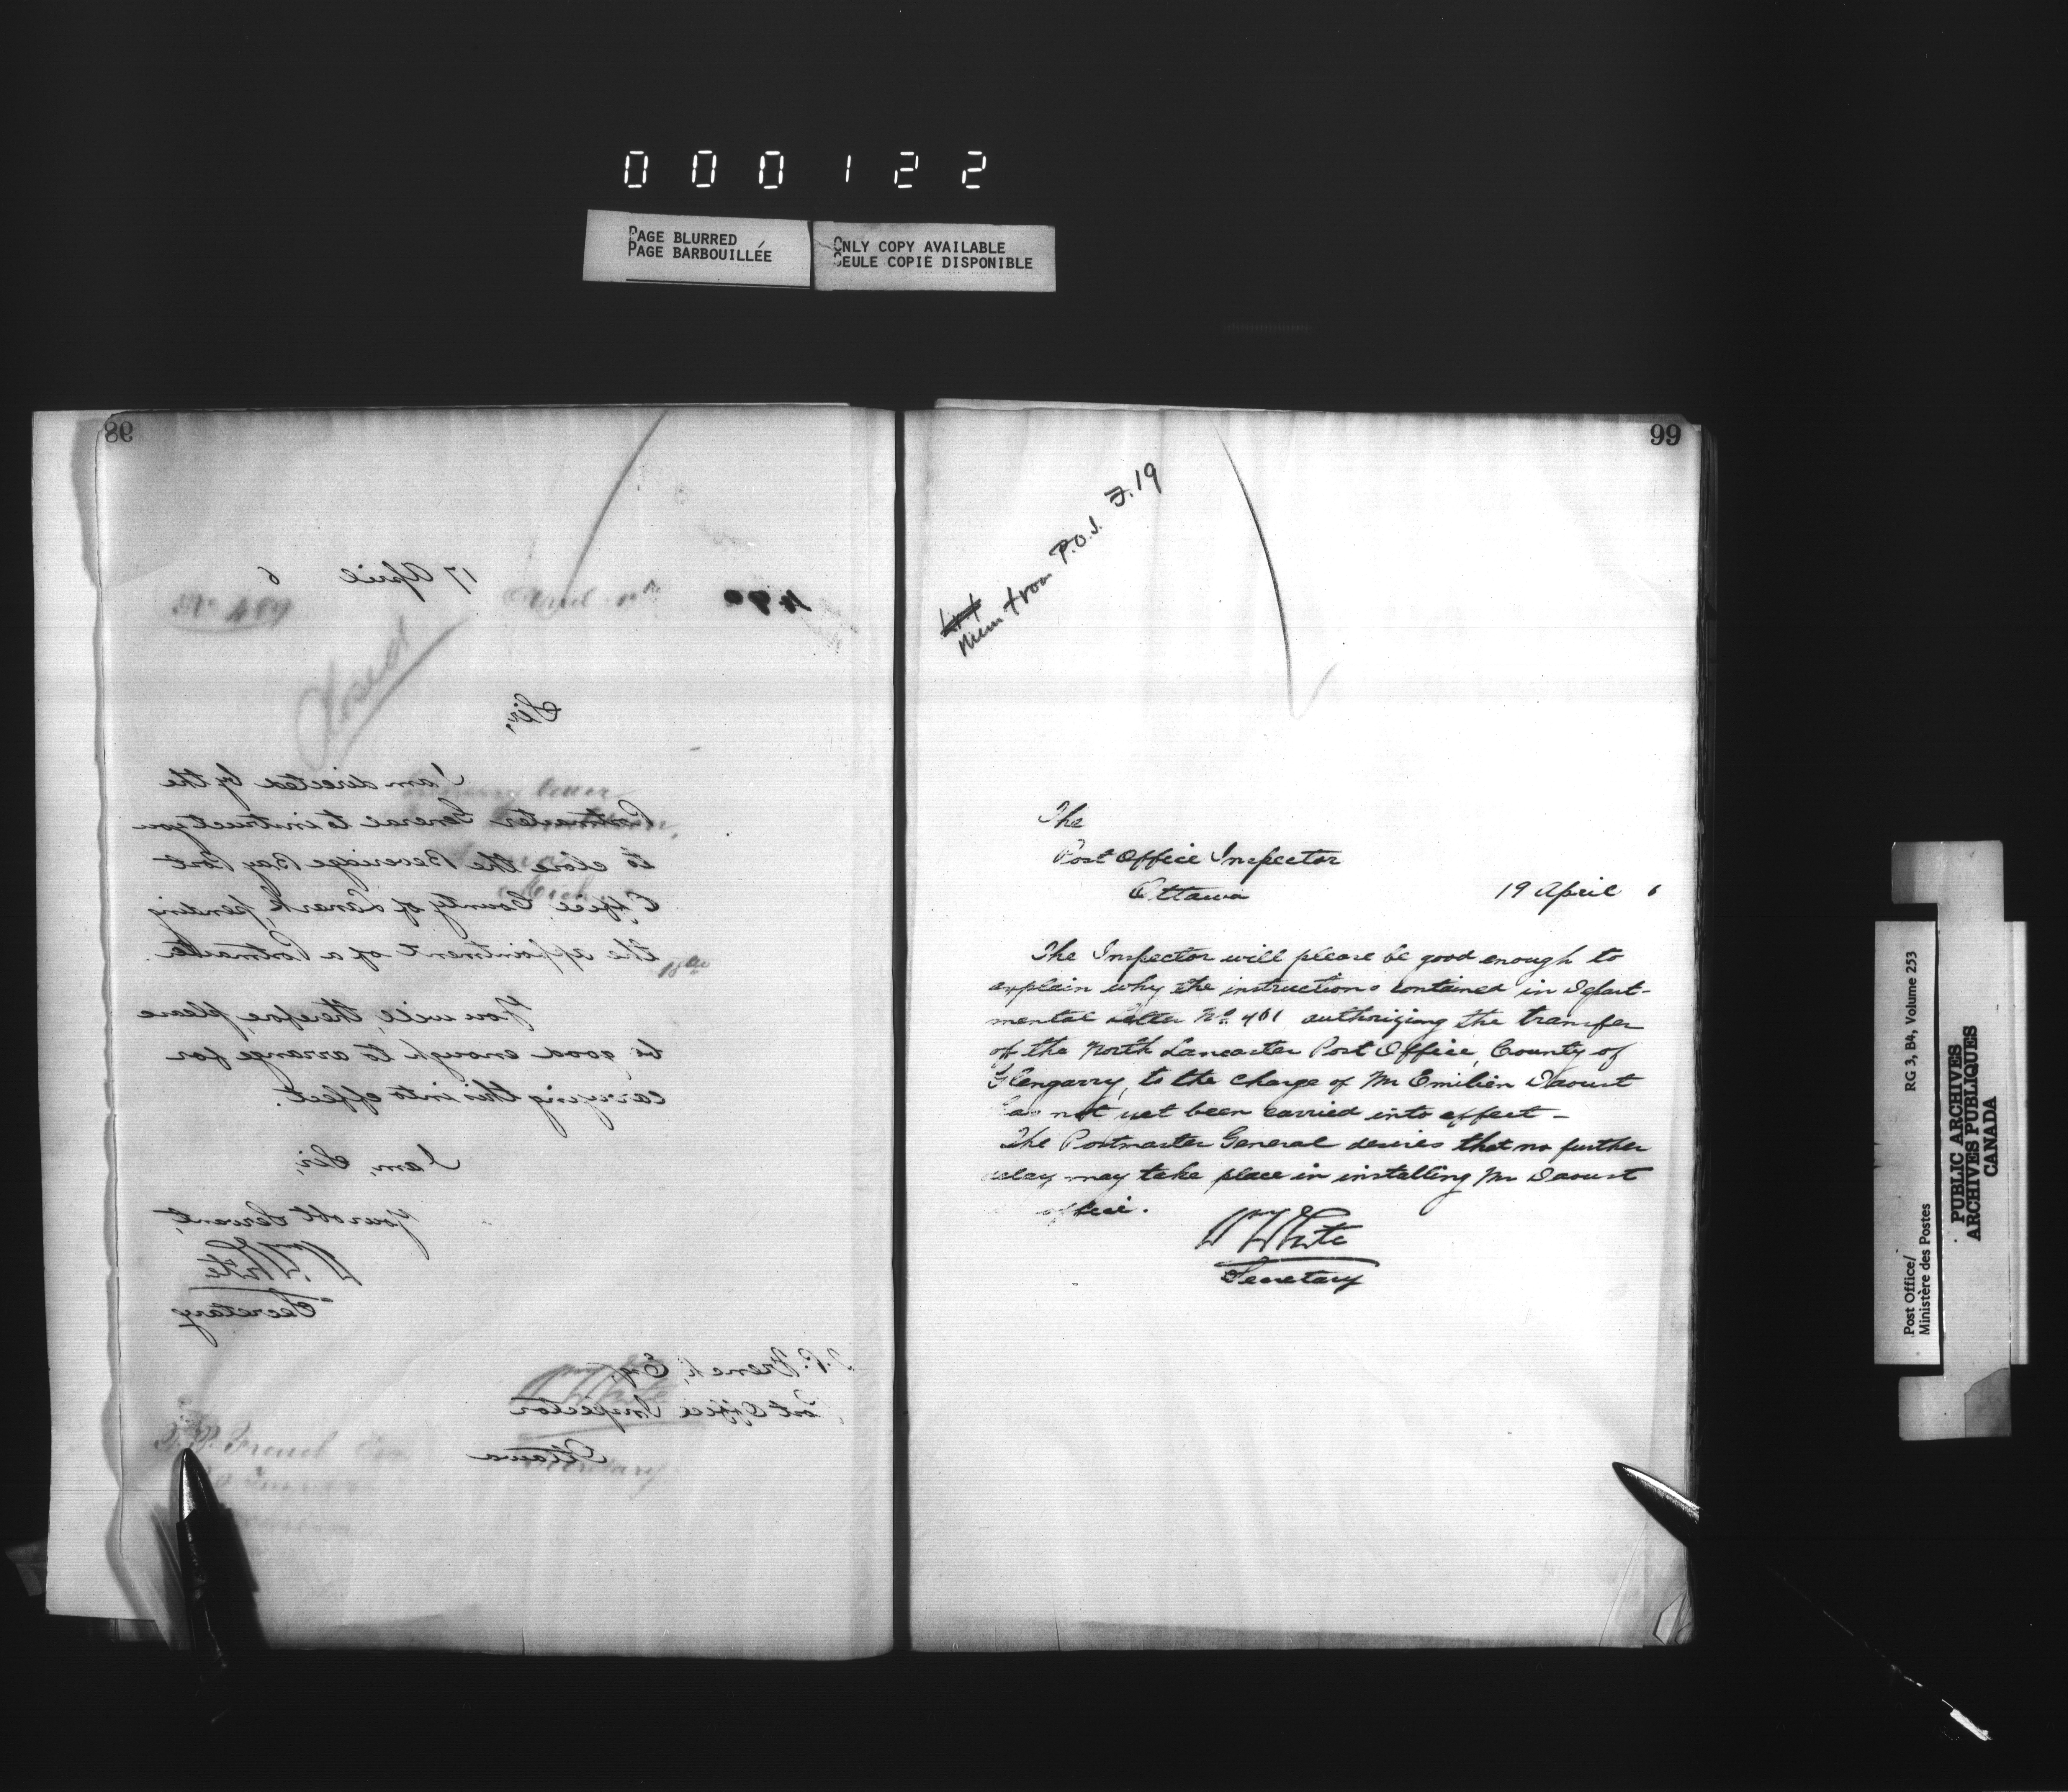 000122
PAGE BLURRED
PAGE BARBOUILLÉE
ONLY COPY AVAILABLE
SEULE COPIE DISPONIBLE
98
17 April 6
No 489
Closed
Sir,
I am directed by the
Postmaster General to instruct you
to close the Beveridge Bay Post
Office, County of Lanark, pending
the appointment of a Postmaster.
You will, therefore, please
be good enough to arrange for
carrying this into effect.
I am, Sir,
Your obt Servant,
Wm White
Secretary
T.P. French, Esq
Post Office Inspector
Ottawa
99
Mem from P.O.I. F.19
The
Post Office Inspector
Ottawa
19 April 6
The Inspector will please be good enough to
explain why the instructions contained in Depart-
mental Letter No. 461 authorizing the transfer
of the North Lancaster Post Office, County of
Glengarry, to the charge of Mr Emilien Daoust
has not yet been carried into effect -
The Postmaster General desires that no further
delay may take place in installing Mr Daoust
office.
Wm White
Secretary
Post Office/ RG 3, B4, Volume 253
Ministère des Postes
PUBLIC ARCHIVES
ARCHIVES PUBLIQUES
CANADA